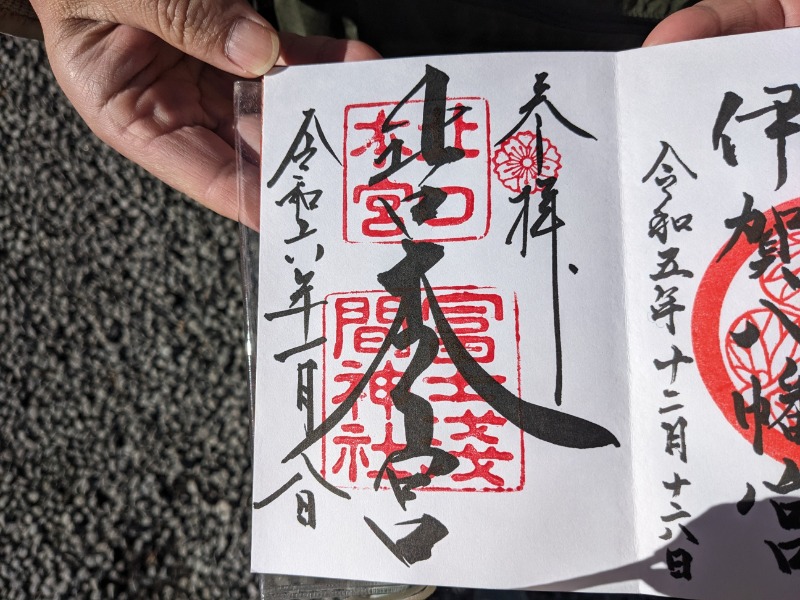 伊賀八幡宮
令和五年十二月十六日
奉拝
北口本宮
北口
本宮
冨士淺
間神社
令和六年一月八日